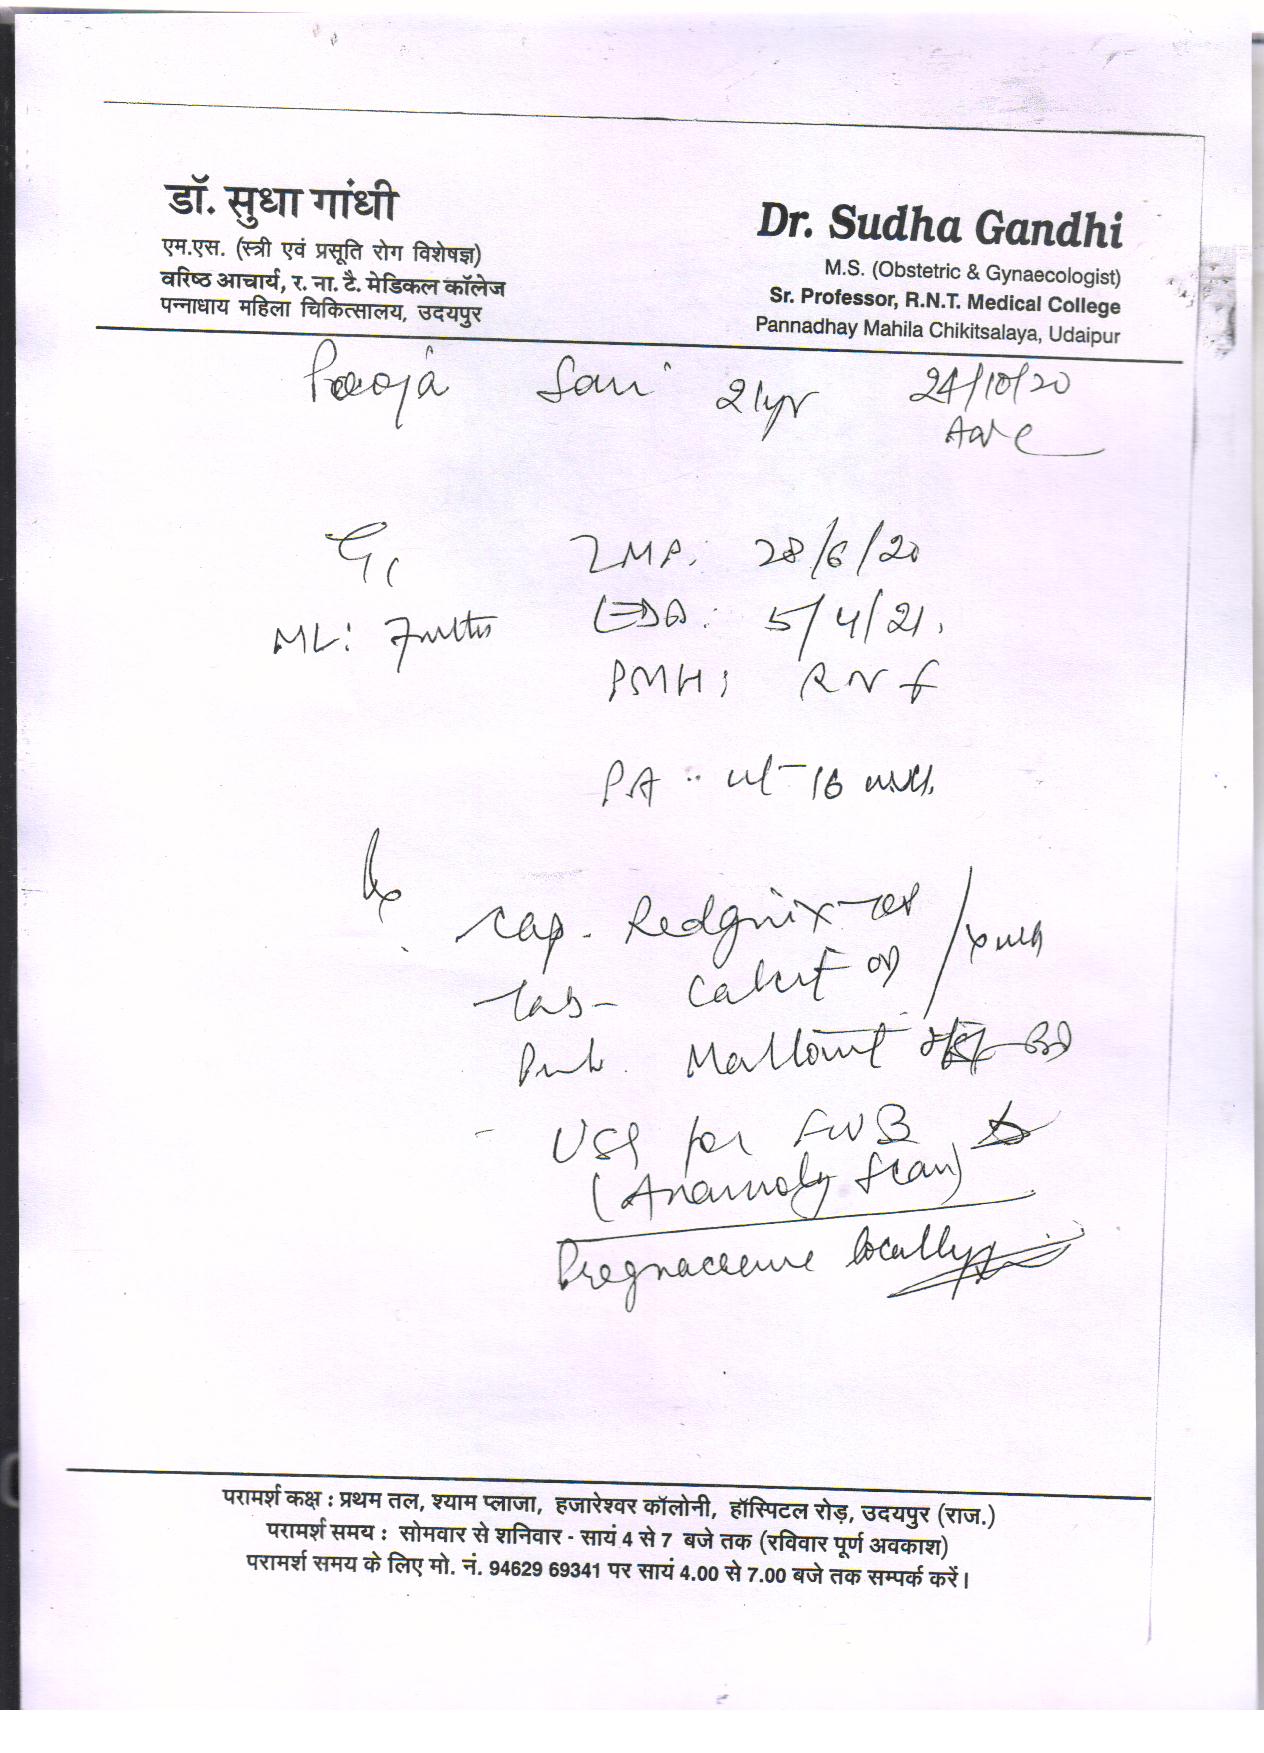 डॉ. सुधा गांधी
एम.एस. (स्त्री एवं प्रसूति रोग विशेषज्ञ)
वरिष्ठ आचार्य, र. ना. टै. मेडिकल कॉलेज
पन्नाधाय महिला चिकित्सालय, उदयपुर
Dr. Sudha Gandhi
M.S. (Obstetric & Gynaecologist)
Sr. Professor, R.N.T. Medical College
Pannadhay Mahila Chikitsalaya, Udaipur
Pooja 21yr 24/10/20
G1 LMP: 28/6/20
ML: EDD: 5/4/21.
PMH:
PA: ut-16
Rx
Cap. Redgnix-
Tab-
USG for FWB
(Anamoly Scan)
locally
परामर्श कक्ष : प्रथम तल, श्याम प्लाजा, हजारेश्वर कॉलोनी, हॉस्पिटल रोड़, उदयपुर (राज.)
परामर्श समय : सोमवार से शनिवार - सायं 4 से 7 बजे तक (रविवार पूर्ण अवकाश)
परामर्श समय के लिए मो. नं. 94629 69341 पर सायं 4.00 से 7.00 बजे तक सम्पर्क करें।